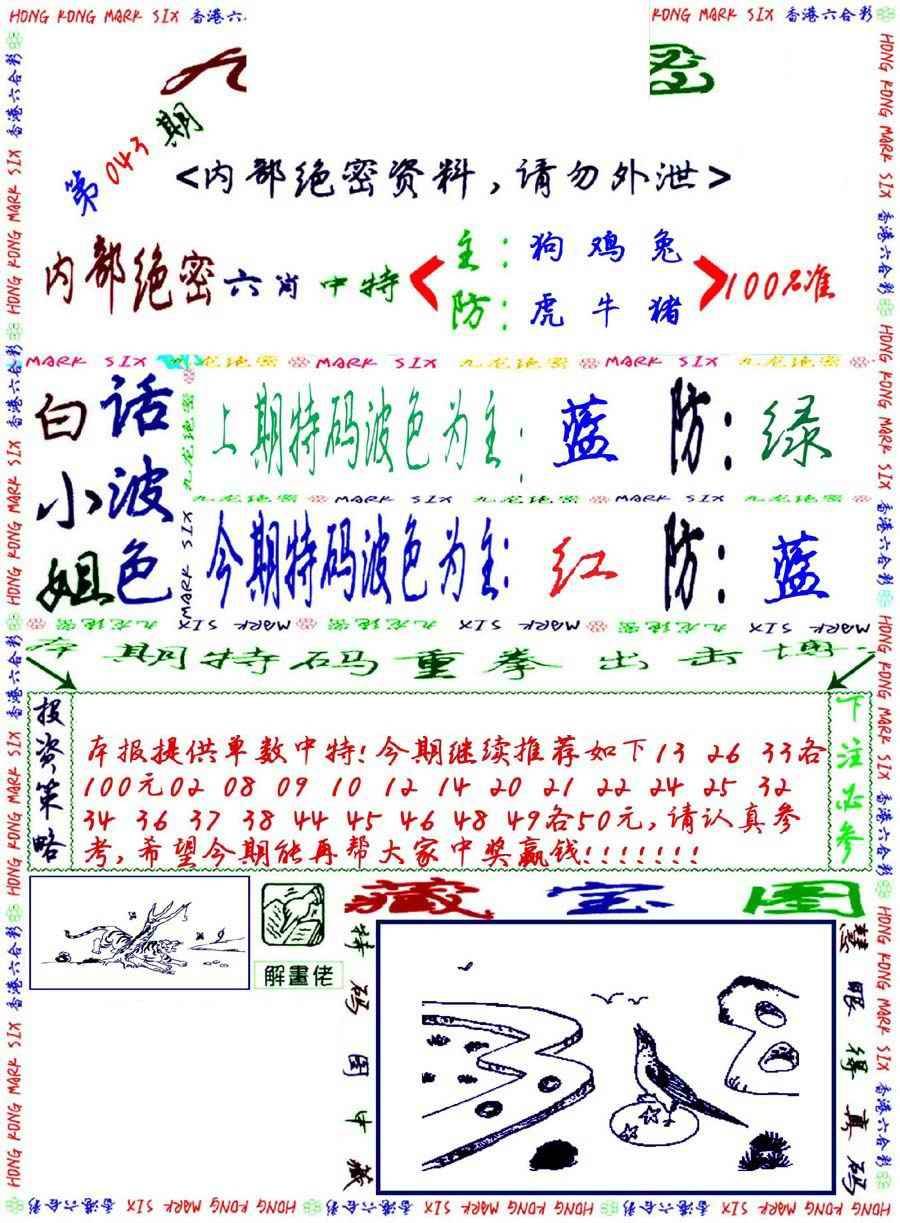 HONG KONG MARK SIX 香港六
KONG MARK SIX 香港六合彩
第043期
<内部绝密资料,请勿外泄>
内部绝密六肖中特
主:狗鸡兔
防:虎牛猪
100%准
MARK SIX 九龙绝密 MARK SIX 九龙绝密 MARK SIX 九龙绝密
白话
小波
姐色
上期特码波色为主:蓝 防:绿
九龙绝密 MARK SIX 九龙绝密 MARK SIX 九龙绝密
今期特码波色为主:红 防:蓝
MARK SIX 九龙绝密 MARK SIX 九龙绝密 MARK SIX 九龙绝密
本期特码重拳出击
投资策略
下注必参
本报提供单数中特!今期继续推荐如下13 26 33各
100元02 08 09 10 12 14 20 21 22 24 25 32
34 36 37 38 44 45 46 48 49各50元,请认真参
考,希望今期能再帮大家中奖赢钱!!!!!!!
藏宝图
解畫佬
特码图中藏
慧眼得真码
HONG KONG MARK SIX 香港六合彩